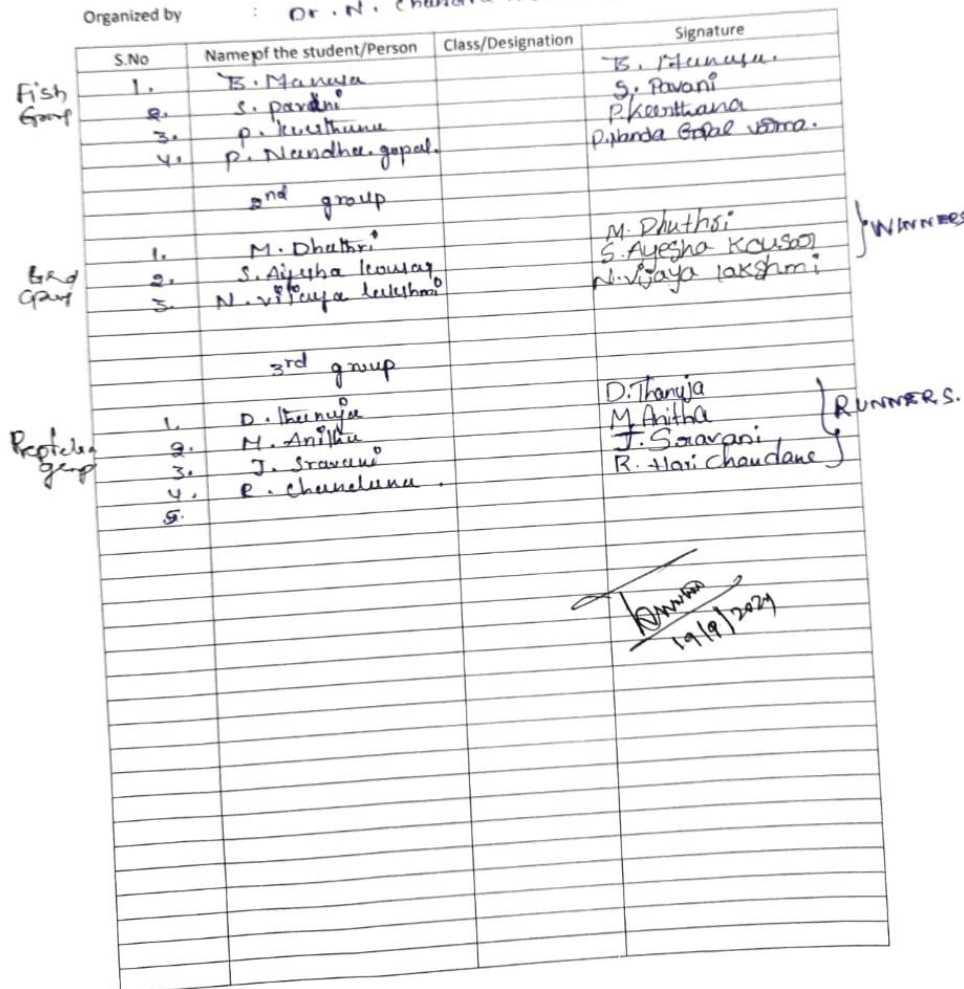 Organized by : Dr. N. Chandra
S.No Name of the student/Person Class/Designation Signature
Fish Group 1. B. Manusa B. Manusa.
2. S. pavani S. Pavani
3. P. keerthana P. Keerthana
4. P. Nandha. gopal. P. Nanda Gopal varma.
2nd group
1. M. Dhathri M. Dhathri
2. S. Ayesha kousar S. Ayesha Kousar WINNERS
3. N. vijaya lakshmi N. vijaya lakshmi
3rd group
1. D. thanuja D. Thanuja
2. M. Anitha M. Anitha RUNNERS.
3. J. Sravani J. Sravani
4. R. chandana. R. Hari Chandane
5.
19/9/2024